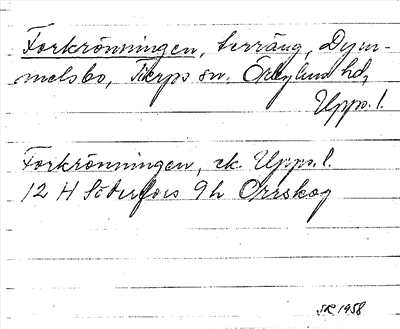 Forkrönningen, terräng, Dym-
melsbo, Tierps sn. Örbyhus hd,
Upps. l.
Forkrönningen, ek. Upps. l.
12 H Söderfors 9h Orrskog
SR 1958